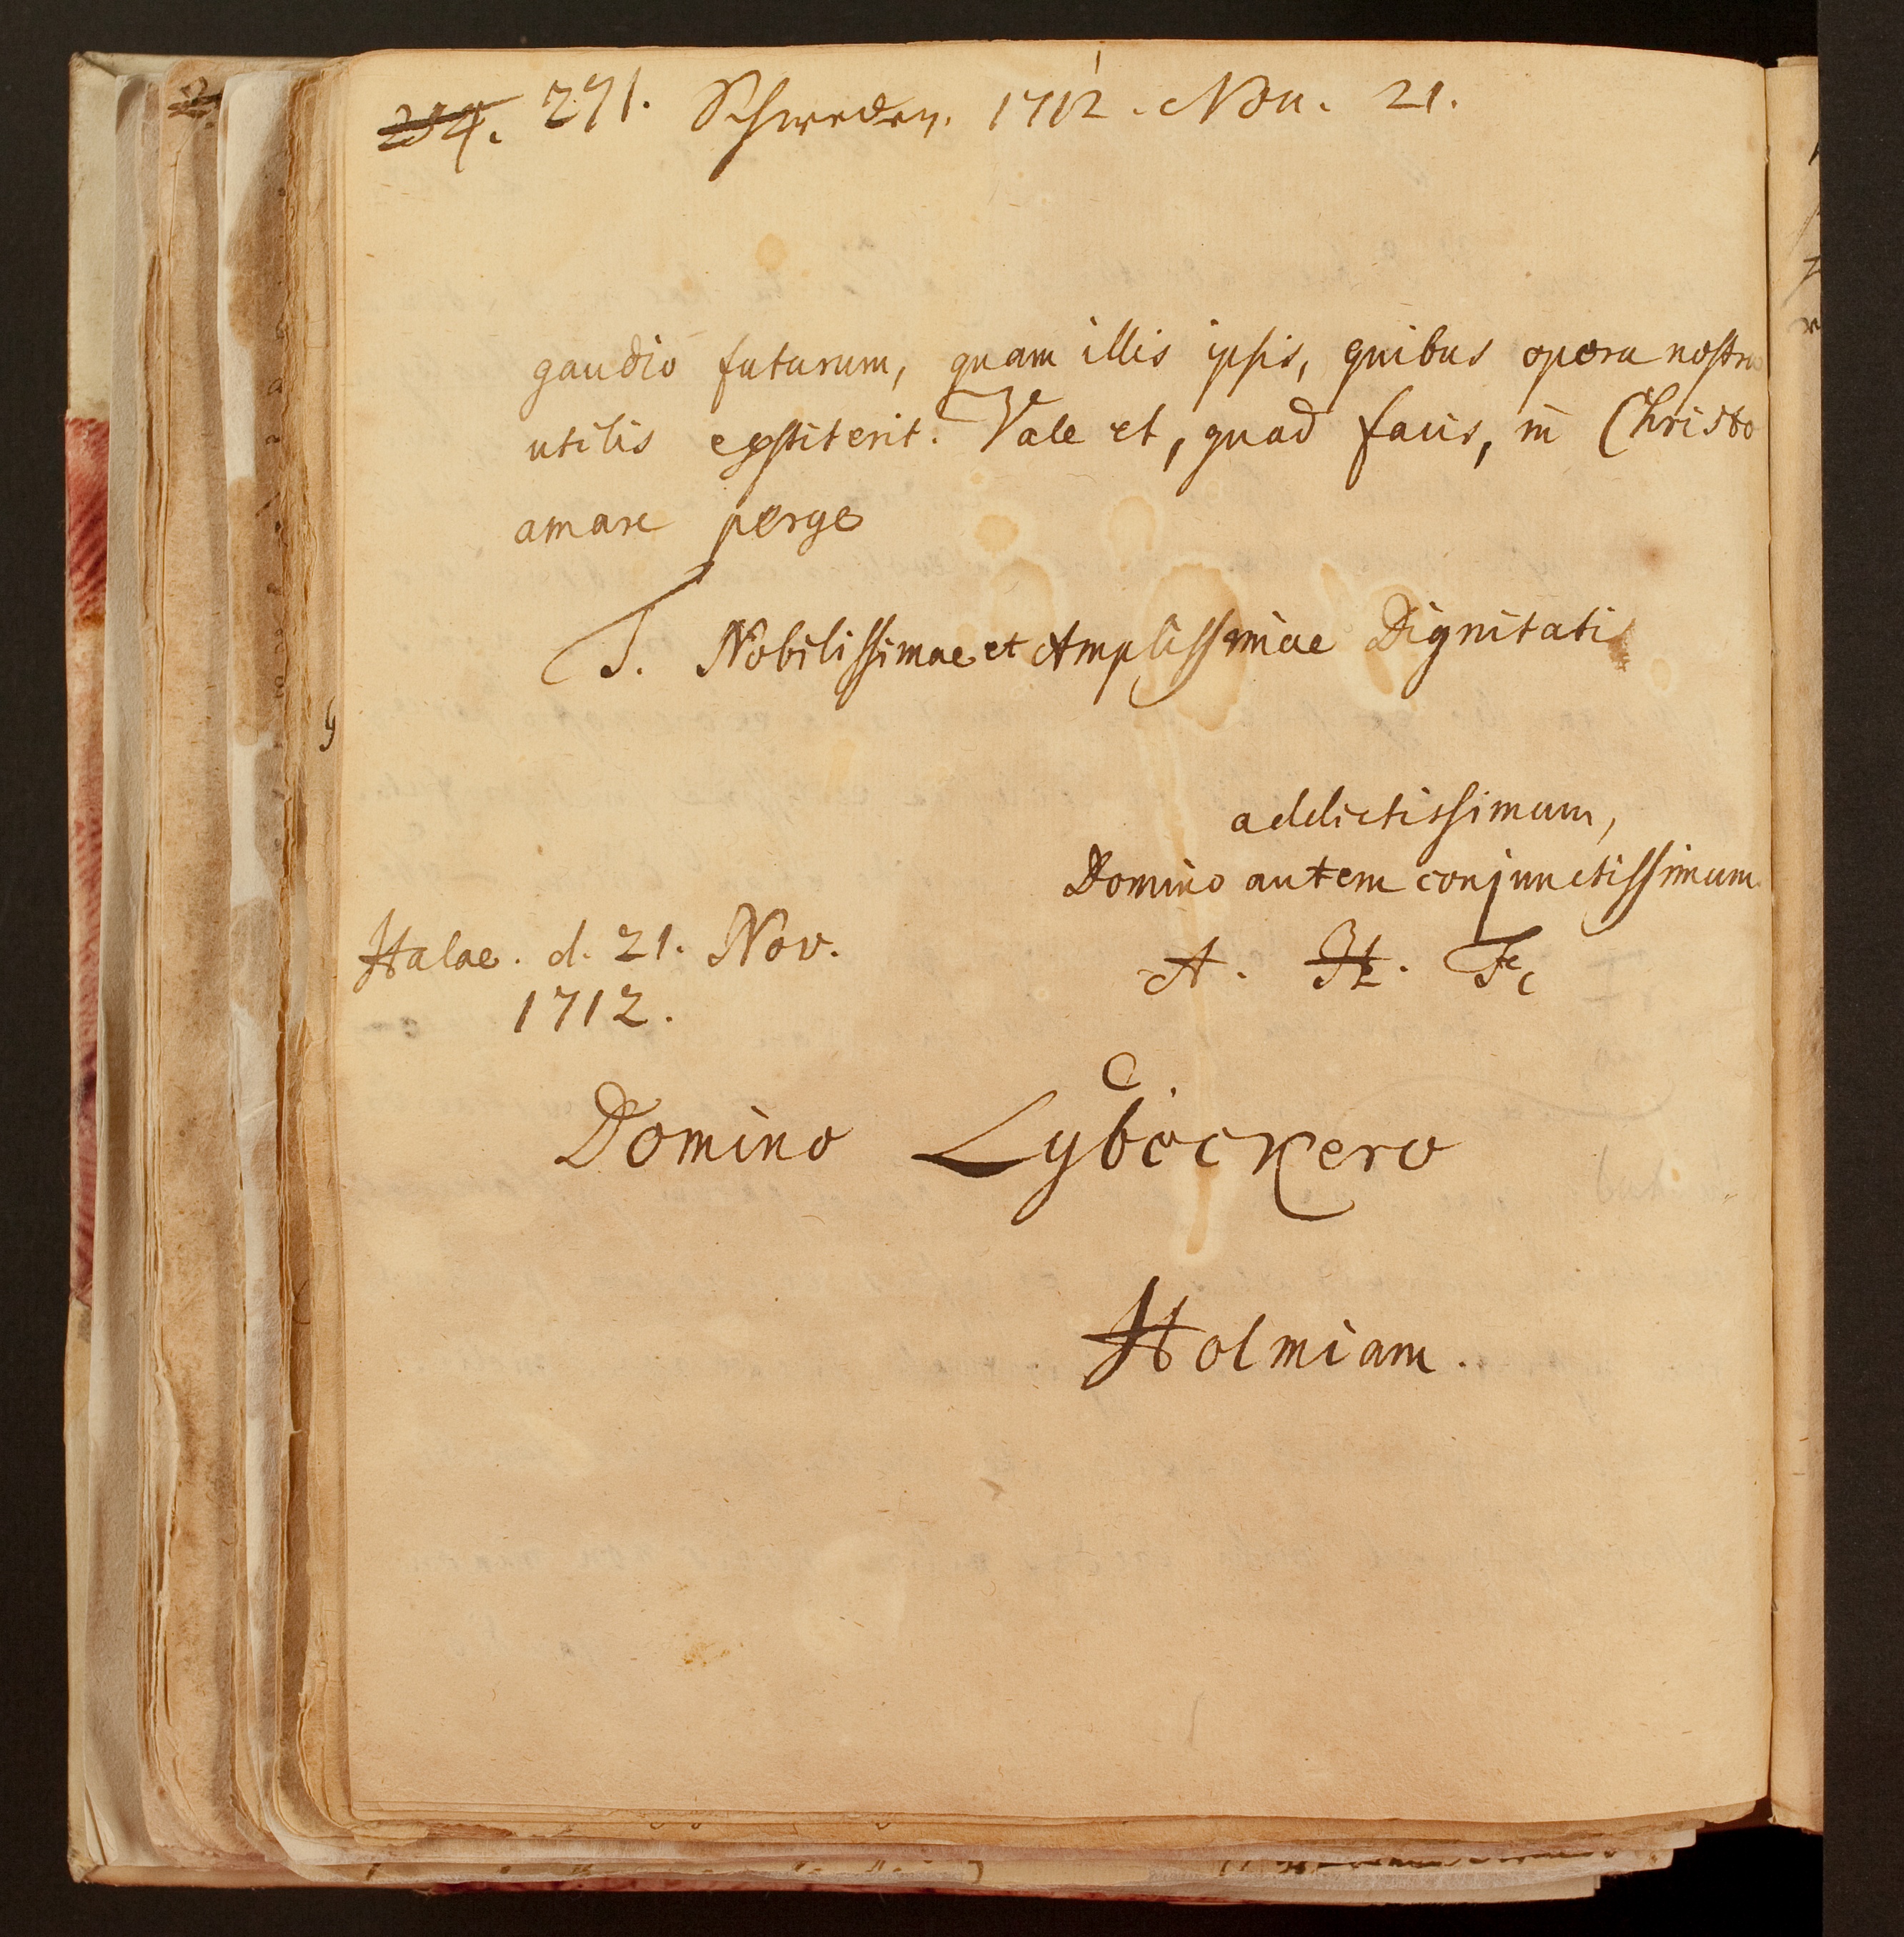 234. 271. Schweden. 1712. Nov. 21.
gaudio futurum, quam illis ipsis, quibus opera nostra
utilis exstiterit. Vale et, quod facis, in Christo
amare perge
T. Nobilissimae et Amplissimae Dignitati
addictissimum,
Domino autem conjunctissimum.
Halae. d. 21. Nov.
1712.
A. H. F.
Domino Lybëckero
Holmiam.